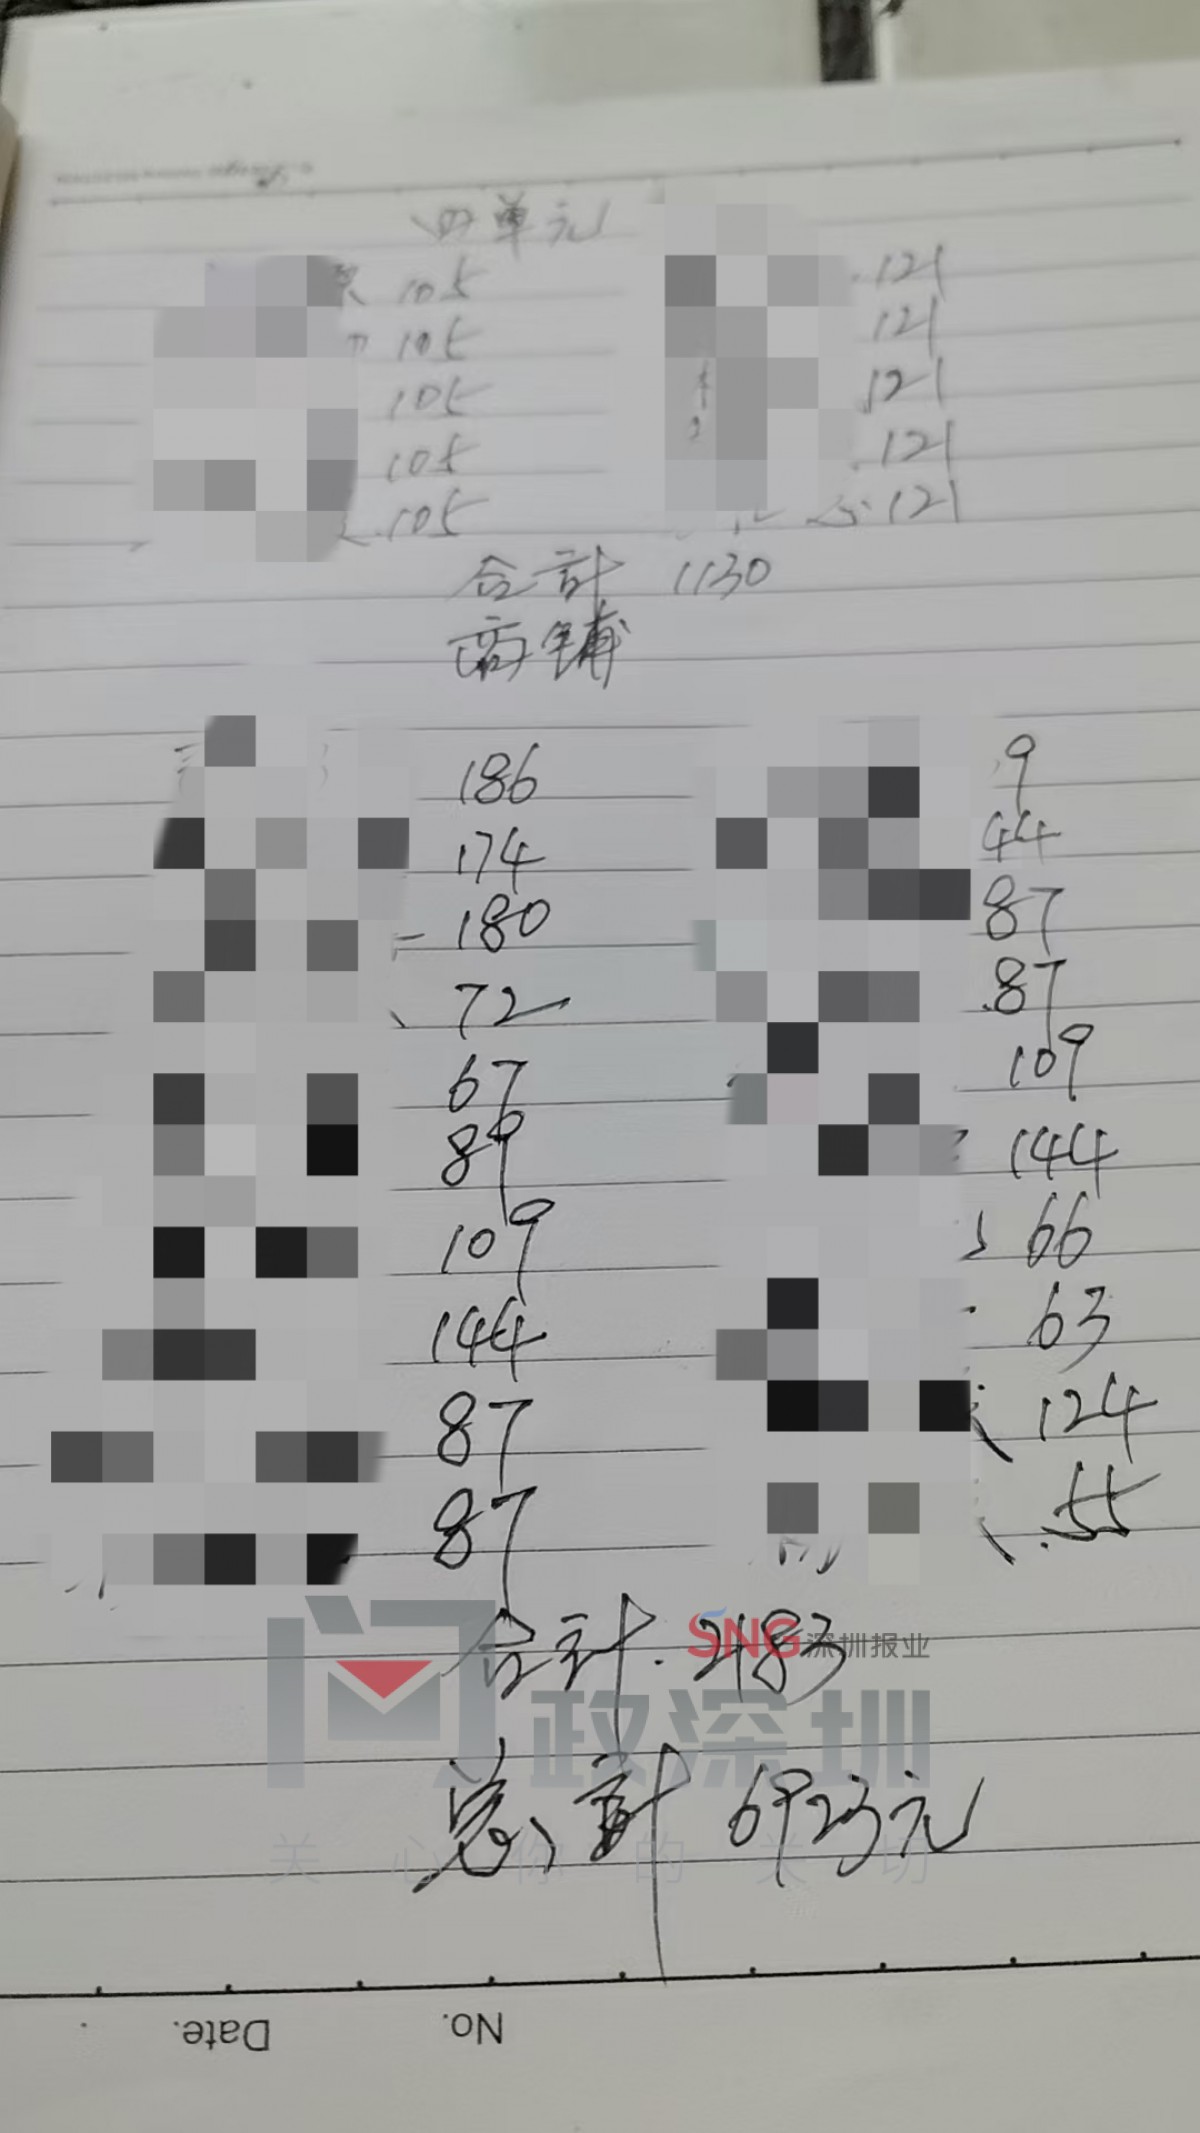 四单元
105 121
105 121
105 121
105 121
105 121
合計 1130
商铺
186 9
174 44
180 87
72 87
67 109
89 144
109 66
144 63
87 124
87 55
合计 2183
SNG 深圳报业
问政深圳
总計 6923元
关心你的关切
No. Date.